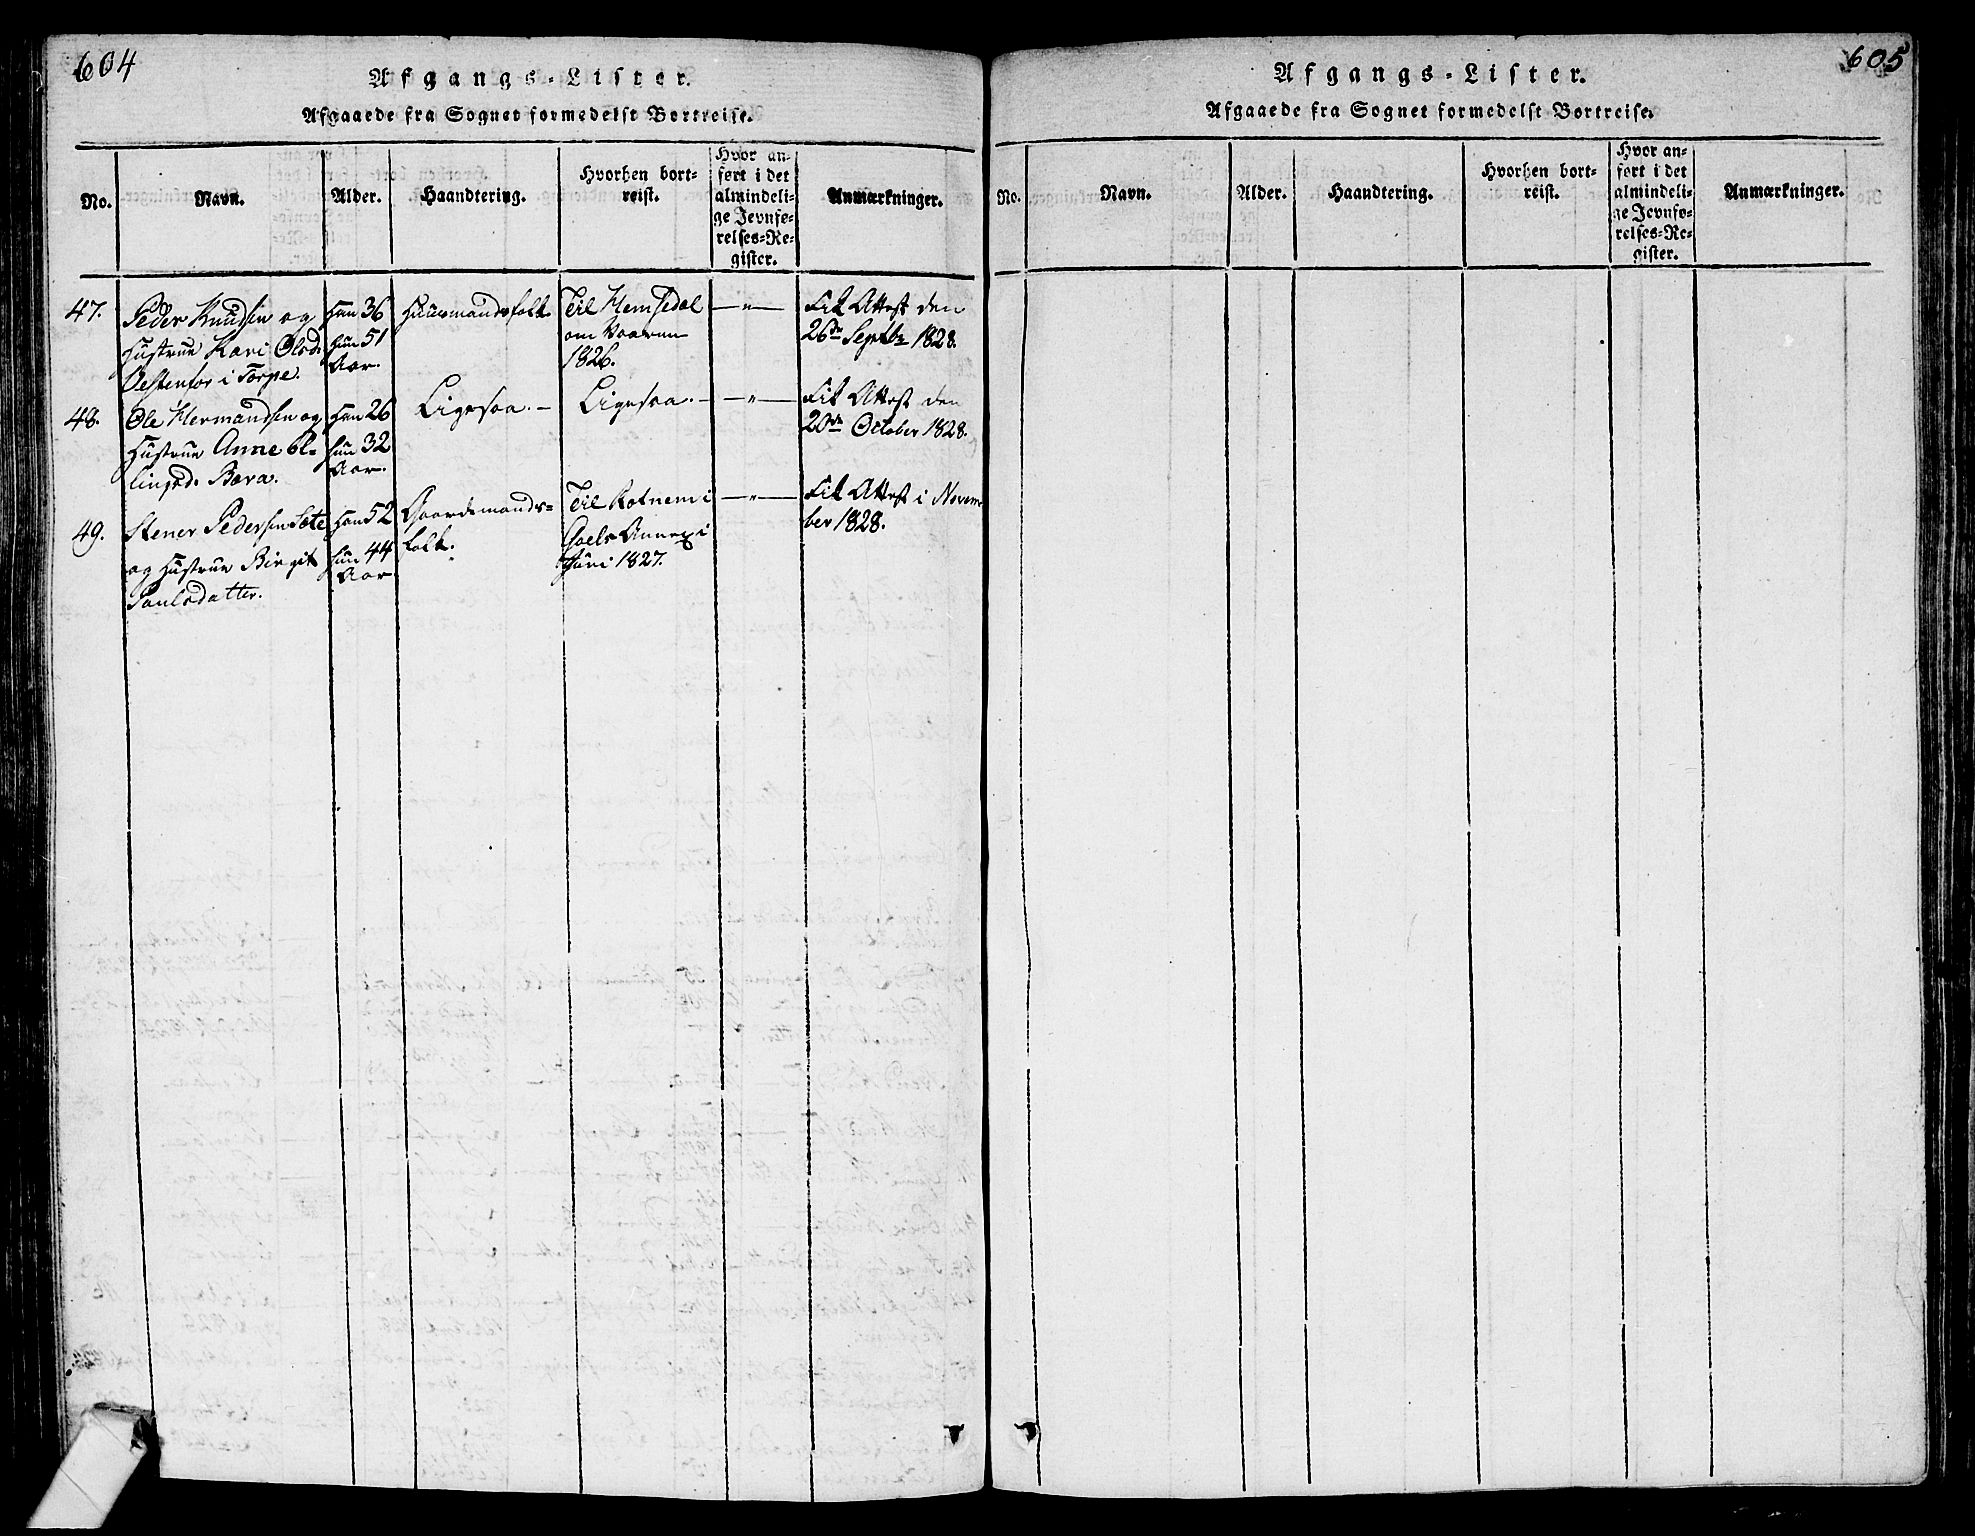 604
Afgangs-Lister.
Afgaaede fra Sognet formedelst Bortreise.
No.
Navn.
Alder.
Haandtering.
Hvorhen bort-
reist.
Hvor an-
ført i det
almindeli-
ge Jevnfø-
relses-Re-
gister.
Anmærkninger.
47.
Peder Knudsen og
Hustrue Kari Olsd.
Vestenfor i Torpe.
Han 36
hun 51
Aar.
Huusmandsfolk
Til Hemsedal
om Vaaren
1826.
—"—
Fik Attest den
26de Septbr 1828.
48.
Ole Hermandsen og
Hustrue Anne El-
lingsd. Bæra.
Han 26
hun 32
Aar.
Ligesaa. —
Ligesaa. —
—"—
Fik Attest den
20de October 1828.
49.
Stener Pedersen Sæte
og Hustrue Birgit
Paulsdatter.
Han 52
hun 44
Aar
Gaardemands-
folk.
Til Rotnem i
Gols Annex i
Juni 1827.
—"—
Fik Attest i Novem-
ber 1828.
605
Afgangs-Lister.
Afgaaede fra Sognet formedelst Bortreise.
No.
Navn.
Alder.
Haandtering.
Hvorhen bort-
reist.
Hvor an-
ført i det
almindeli-
ge Jevnfø-
relses-Re-
gister.
Anmærkninger.